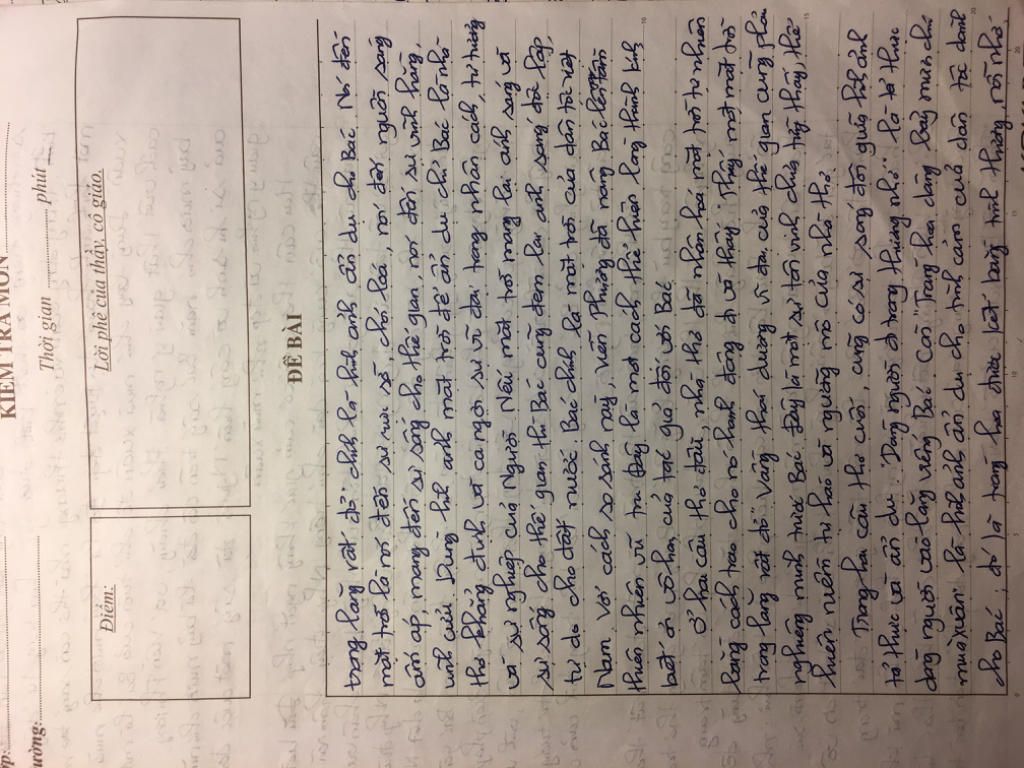 KIỂM TRA MÔN
Thời gian phút
Lời phê của thầy, cô giáo.
Điểm:
ĐỀ BÀI
trong lăng rất đỏ" chính là hình ảnh ẩn dụ cho Bác. Nói đến
mặt trời là nói đến sự rực rỡ, chói loá, nói đến nguồn sang
ấm áp, mang đến sự sống cho thế gian, nói đến sự vĩnh hằng,
vĩnh cửu. Dùng hình ảnh mặt trời để ẩn dụ chỉ Bác là nhà
thơ khẳng định và ca ngợi sự vĩ đại trong nhân cách, tư tưởng
và sự nghiệp của Người. Nếu mặt trời mang lại ánh sáng và
sự sống cho thế gian thì Bác cũng đem lại ánh sáng độc lập,
tự do cho đất nước. Bác chính là mặt trời của dân tộc Việt
Nam. Với cách so sánh này, Viễn Phương đã nâng Bác lên tầm
thiên nhiên vũ trụ. Đây là một cách thể hiện lòng thành kính
biết ơn vô hạn của tác giả đối với Bác
Ở hai câu thơ đầu, nhà thơ đã nhân hoá mặt trời tự nhiên
bằng cách trao cho nó hành động đi và thấy: "Thấy một mặt trời
trong lăng rất đỏ". Vầng thái dương vĩ đại của thế gian cũng phải
nghiêng mình trước Bác. Đây là một sự tôn vinh chưa từng thấy, thể
hiện niềm tự hào và ngưỡng mộ của nhà thơ.
Trong hai câu thơ cuối, cũng có sự sóng đôi giữa hình ảnh
tả thực và ẩn dụ: "Dòng người đi trong thương nhớ" là tả thực
dòng người vào lăng viếng Bác. Còn "Tràng hoa dâng bảy mươi chín
mùa xuân" là hình ảnh ẩn dụ cho tình cảm của dân tộc dành
cho Bác; đó là tràng hoa được kết bằng tình thương, nỗi nhớ,